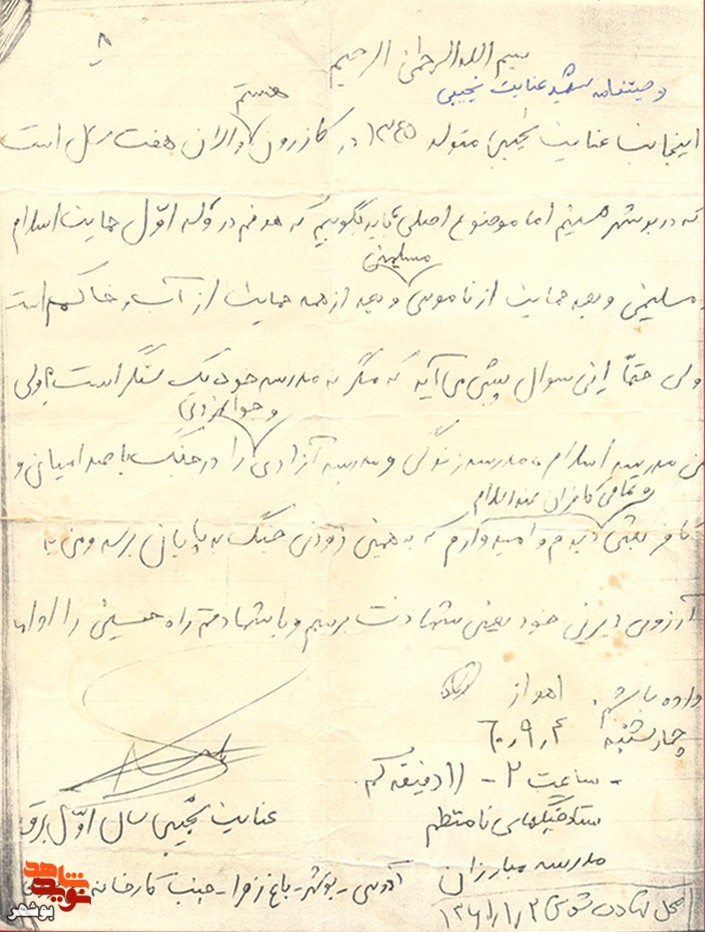 ۸
بسم الله الرحمن الرحیم
وصیتنامه شهید عنایت نجیبی
هستم
اینجانب عنایت نجیبی متولد ۱۳۴۵ در کازرون و الان هفت سال است
که در بوشهر هستیم اما موضوع اصلی باید بگویم که هدفم در وله اوّل حمایت اسلام
مسلمین
و مسلمین و بعد حمایت از ناموس و بعد از همه حمایت از آب و خاکم است
ولی حتماً این سوال پیش می‌آید که مگر نه مدرسه خود یک سنگر است؟ ولی
و جوانمردی
من مدرسه اسلام، مدرسه زندگی و مدرسه آزادی را در جنگ با صدامیان و
و تمامی کافران ضد اسلام
کافر بعثی دیدم و امیدوارم که به همین زودی جنگ به پایان برسد و من به
آرزوی دیرین خود یعنی شهادت برسم و با شهادتم راه حسین را ادامه
داده باشم. اهواز
چهارشنبه ۶۰٫۹٫۴
- ساعت ۲ - ۱۱ دقیقه کم
ستاد جنگهای نامنظم
مدرسه مبارزان
عنایت نجیبی سال اوّل برق
آدرس - بوشهر - باغ زهرا - جنب کارخانه
محل شهادت شوش ۱۳۶۱/۱/۲
شاهد
نوید
بوشهر